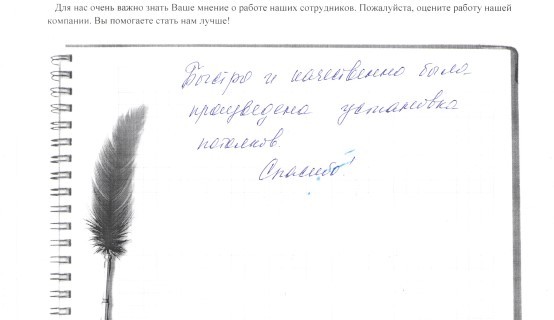 Для нас очень важно знать Ваше мнение о работе наших сотрудников. Пожалуйста, оцените работу нашей
компании. Вы помогаете стать нам лучше!
Быстро и качественно была
произведена установка
потолков.
Спасибо!